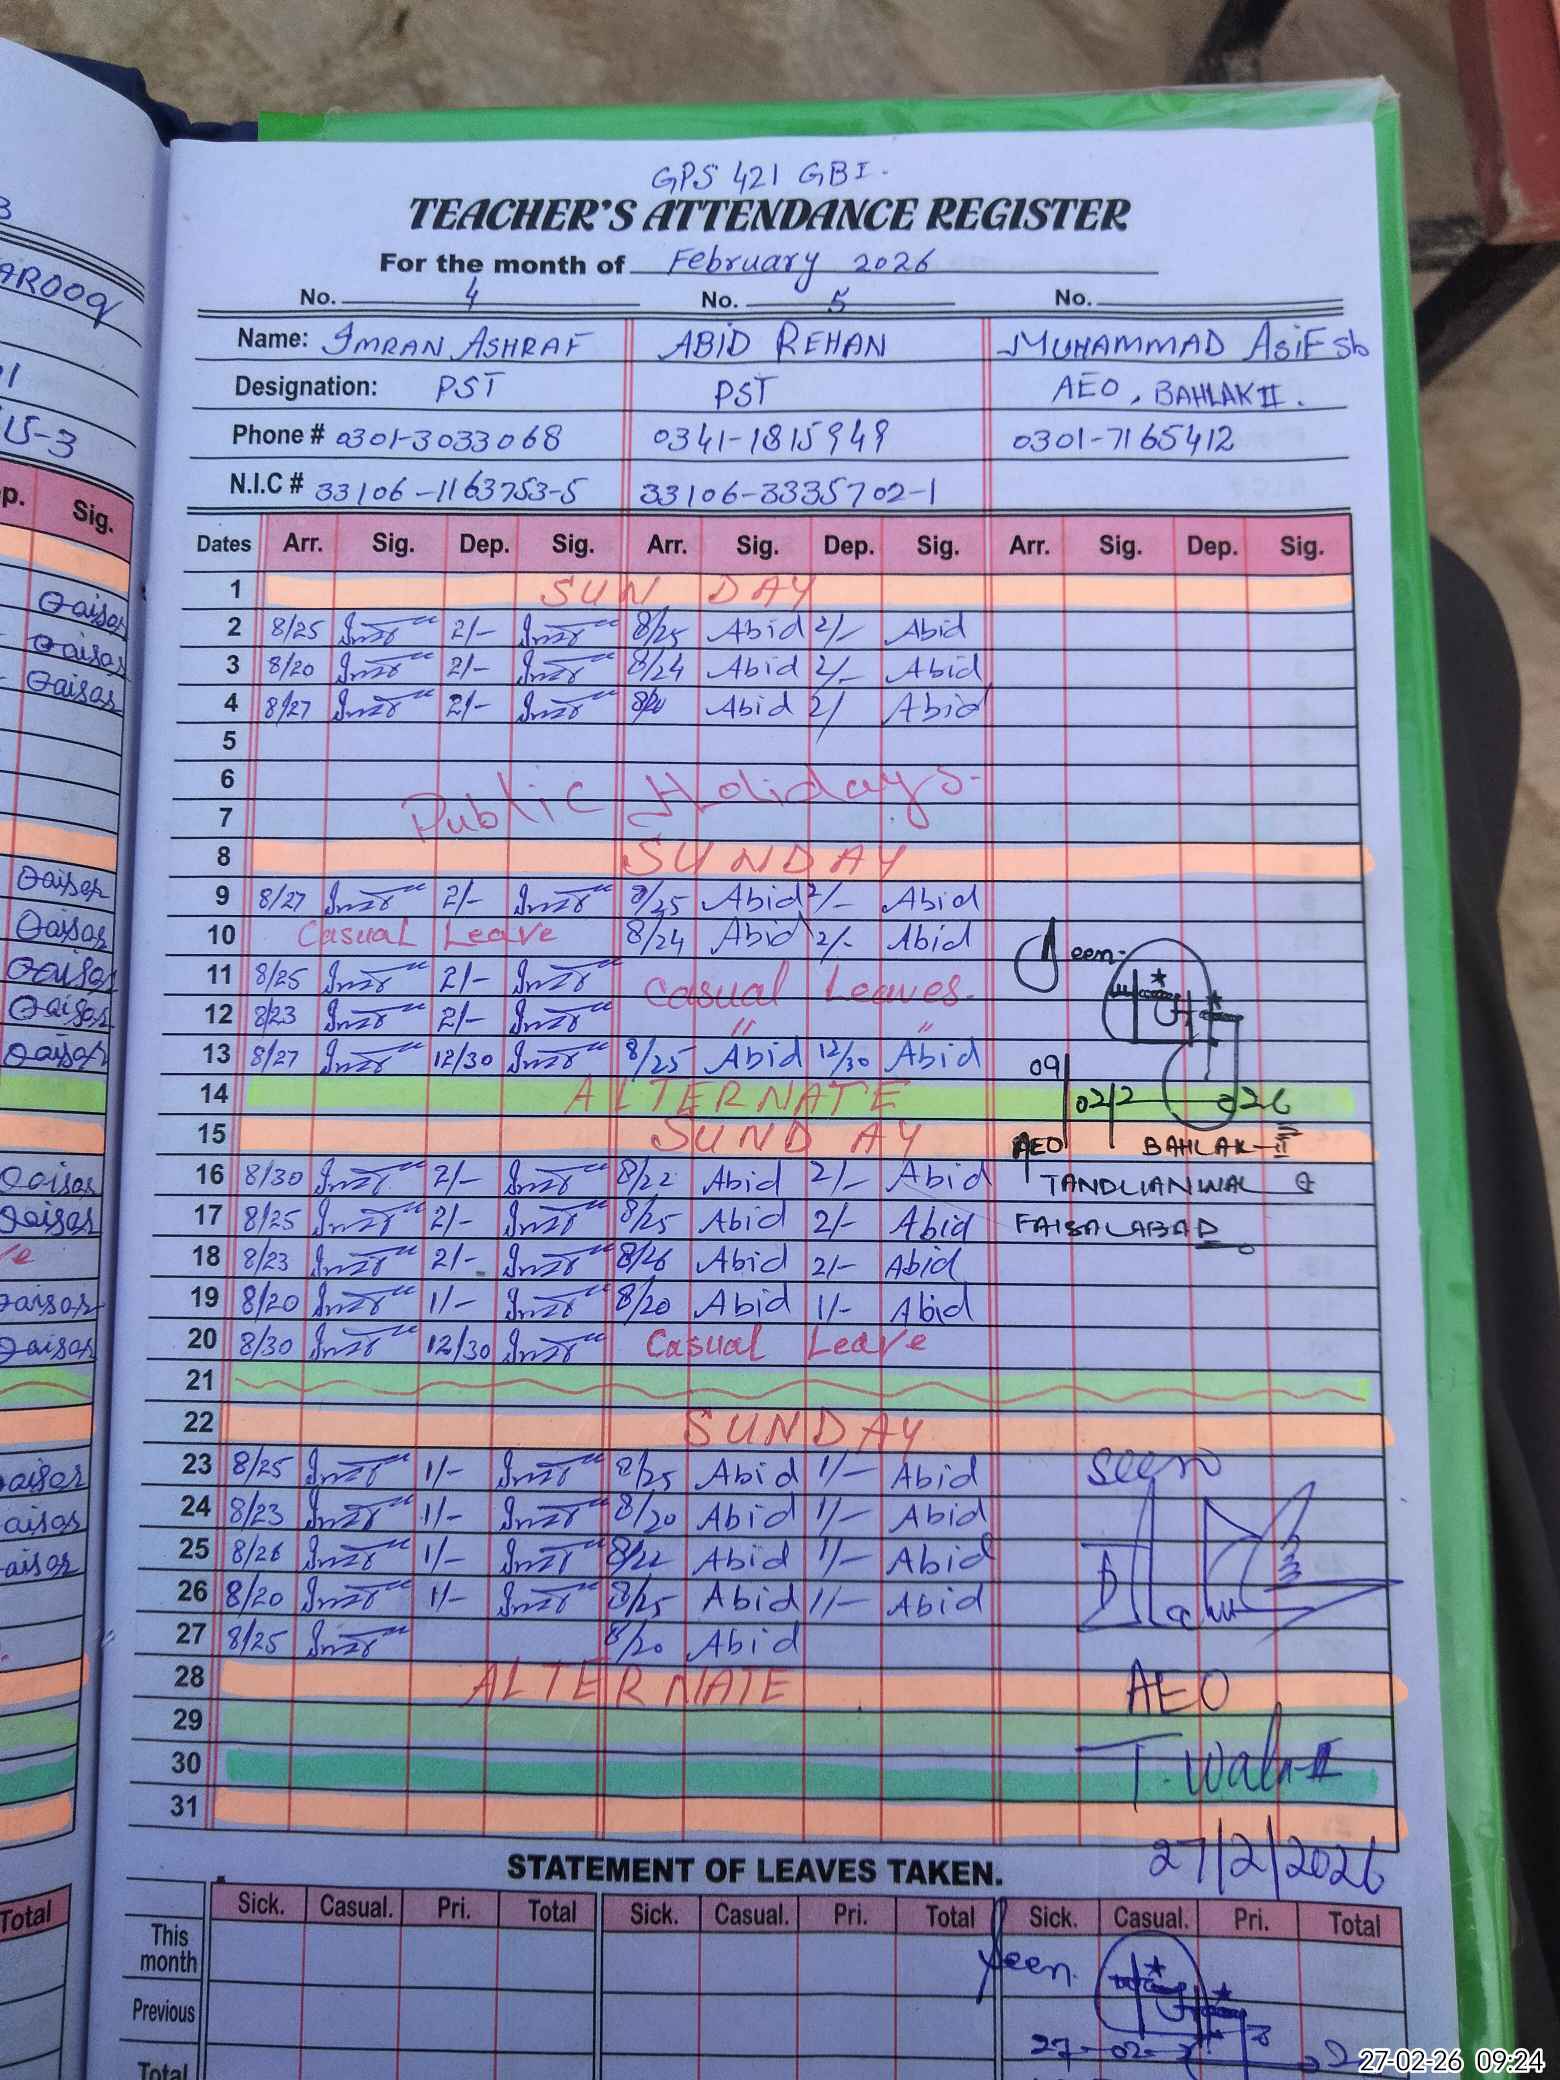 GPS 421 GBI.
TEACHER'S ATTENDANCE REGISTER
For the month of February 2026
No. 4 No. 5 No.
Name: IMRAN ASHRAF ABID REHAN MUHAMMAD ASIF sb
Designation: PST PST AEO, BAHLAK II.
Phone # 0301-3033068 0341-1815949 0301-7165412
N.I.C # 33106-1163753-5 33106-3335702-1
Dates Arr. Sig. Dep. Sig. Arr. Sig. Dep. Sig. Arr. Sig. Dep. Sig.
1 SUNDAY
2 8/25 2/- 8/25 Abid 2/- Abid
3 8/20 2/- 8/24 Abid 2/- Abid
4 8/27 2/- Abid 2/ Abid
5
6 Public Holidays.
7
8 SUNDAY
9 8/27 2/- 8/25 Abid 2/- Abid
10 Casual Leave 8/24 Abid 2/- Abid Seen.
11 8/25 2/- Casual Leaves.
12 8/23 2/- " "
13 8/27 12/30 8/25 Abid 12/30 Abid
14 ALTERNATE 09/02/2026
15 SUNDAY AEO BAHLAK-II
16 8/30 2/- 8/22 Abid 2/- Abid TANDLIANWALA
17 8/25 2/- 8/25 Abid 2/- Abid FAISALABAD
18 8/23 2/- 8/26 Abid 2/- Abid
19 8/20 1/- 8/20 Abid 1/- Abid
20 8/30 12/30 Casual Leave
21
22 SUNDAY
23 8/25 1/- 8/25 Abid 1/- Abid Seen
24 8/23 1/- 8/20 Abid 1/- Abid
25 8/26 1/- 8/22 Abid 1/- Abid
26 8/20 1/- 8/25 Abid 1/- Abid
27 8/25 8/20 Abid
28 ALTERNATE AEO
29
30 T. Wala-II
31
27/2/2026
STATEMENT OF LEAVES TAKEN.
Sick. Casual. Pri. Total Sick. Casual. Pri. Total Sick. Casual. Pri. Total
This month Seen.
Previous
Total
27-02-26 09:24
AROOQ
U-3
p. Sig.
Qaisar
Qaisar
Qaisar
Qaisar
Qaisar
Qaisar
Qaisar
Qaisar
Qaisar
Qaisar
Qaisar
Qaisar
Total